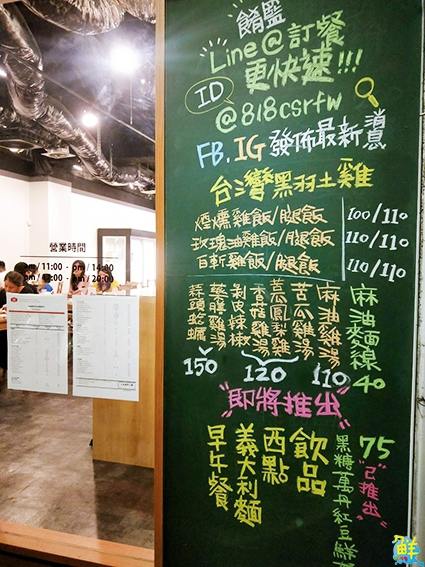 餚盬
Line@訂餐
更快速!!!
ID
@818csrfw
FB.IG 發佈最新消息
台灣黑羽土雞
煙燻雞飯/腿飯 100/110
玫瑰油雞飯/腿飯 110/110
白斬雞飯/腿飯 110/110
麻油麵線
40
麻油雞湯
110
苦瓜雞湯
蒜鳳梨雞湯
香菇雞湯
120
剝皮辣椒
藥膳雞湯
蒜頭蛤蠣
150
即將推出
75
"已推出"
黑糖萬丹紅豆鮮
飲品
西點
義大利麵
早午餐
營業時間
am/11:00 - pm/14:00
pm/20:00
鮮